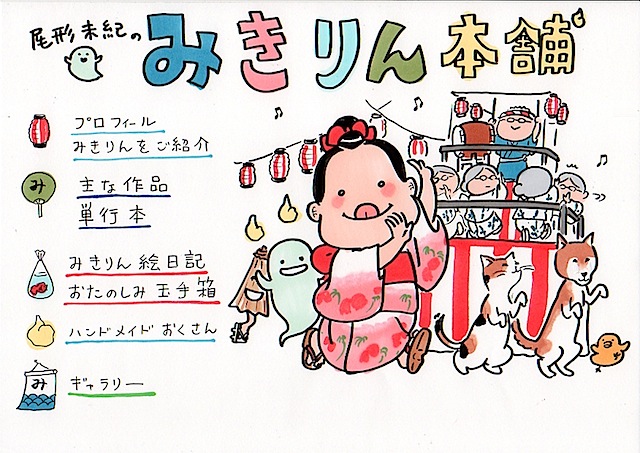 尾形未紀の
みきりん本舗
プロフィール
みきりんをご紹介
み
主な作品
単行本
みきりん絵日記
おたのしみ玉手箱
ハンドメイドおくさん
み
ギャラリー